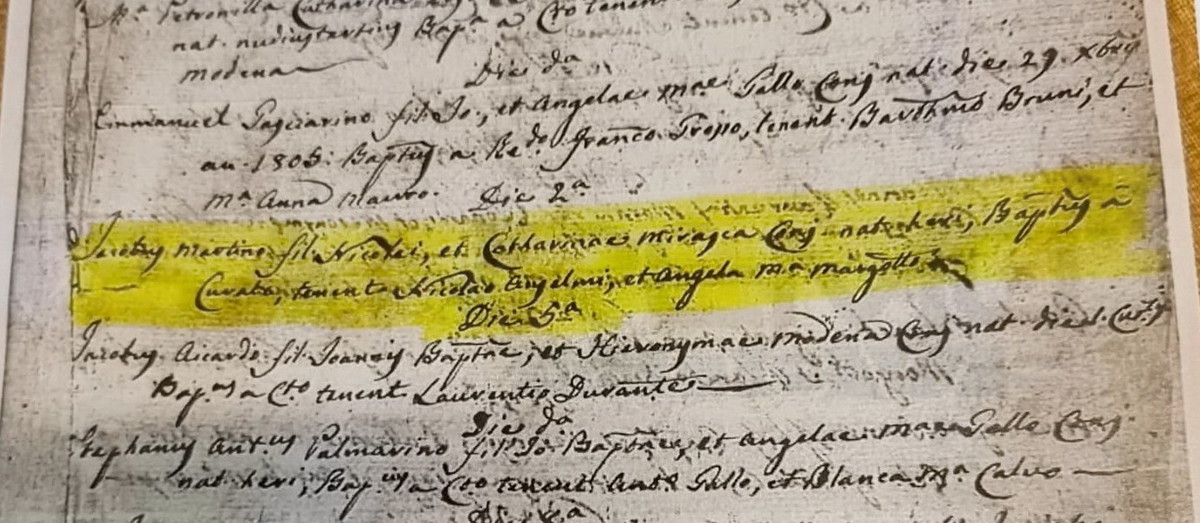 Mᵃ Petronilla Catharina
nat. nudiustertius Bapᵃ a Cto tenent
modena
Die dᵃ
Emmanuel Pagliarino fil. Jo., et Angelae mᵃᵉ Gallo Conj nat. die 29. Xbris
an. 1805: Baptus a Redo Franco Troppo, tenent. Bartħmo Bruni, et
mᵃ Anna mauro.
Die 2ᵃ
Jacobus martino fil. Nicolai, et Catharinae Conj. nat. heri, Baptus a
Curato, tenent Nicolao Anzelmi, et Angela mᵃ margotto
Die 5ᵃ
Jacobus Aicardo fil. Joannis Baptae, et Hieronymae modena Conj nat. die
Bapᵘˢ a Cto tenent Laurentio Durante
Die dᵃ
Stephanus Antus Palmarino fil. Jo. Baptae, et Angelae mariae Gallo Conj.
nat. heri, Bapᵘˢ a Cto tenent. Anto Gallo, et Blanca Mᵃ Calvo
Die